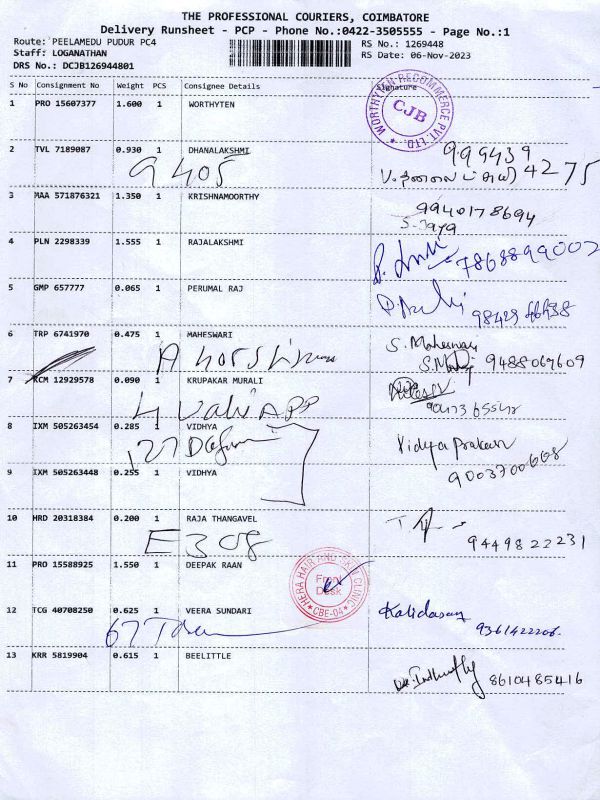 THE PROFESSIONAL COURIERS, COIMBATORE
Delivery Runsheet - PCP - Phone No.:0422-3505555 - Page No.:1
Route: PEELAMEDU PUDUR PC4
RS No.: 1269448
Staff: LOGANATHAN
RS Date: 06-Nov-2023
DRS No.: DCJB126944801
S No Consignment No Weight PCS Consignee Details Signature
1 PRO 15607377 1.600 1 WORTHYTEN
WORTHYTEN RECOMMERCE PVT. LTD.
CJB
2 TVL 7189087 0.930 1 DHANALAKSHMI
G 405
99439
4275
3 MAA 571876321 1.350 1 KRISHNAMOORTHY
9940178694
S. Jaya
4 PLN 2298339 1.555 1 RAJALAKSHMI
7868899002
5 GMP 657777 0.065 1 PERUMAL RAJ
6 TRP 6741970 0.475 1 MAHESWARI
S. Maheswari
9488069609
7 KCM 12929578 0.090 1 KRUPAKAR MURALI
8 IXM 505263454 0.285 1 VIDHYA
Vidya Prakash
9003700668
9 IXM 505263448 0.255 1 VIDHYA
10 HRD 20318384 0.200 1 RAJA THANGAVEL
E 308
9449822231
11 PRO 15588925 1.550 1 DEEPAK RAAN
HERA HAIR AND SKIN CLINIC
Front Desk
CBE-04
12 TCG 40708250 0.625 1 VEERA SUNDARI
Kalidasan
9361422206.
13 KRR 5819904 0.615 1 BEELITTLE
8610485416